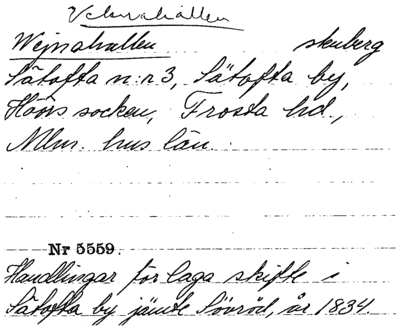 Vejnahallen
Wejnahallen stenberg
Sätofta n:r 3, Sätofta by,
Höörs socken, Frosta hd.,
Mlm. hus län.
Nr 5559.
Handlingar för laga skifte i
Sätofta by jämte Sövröd, år 1834.